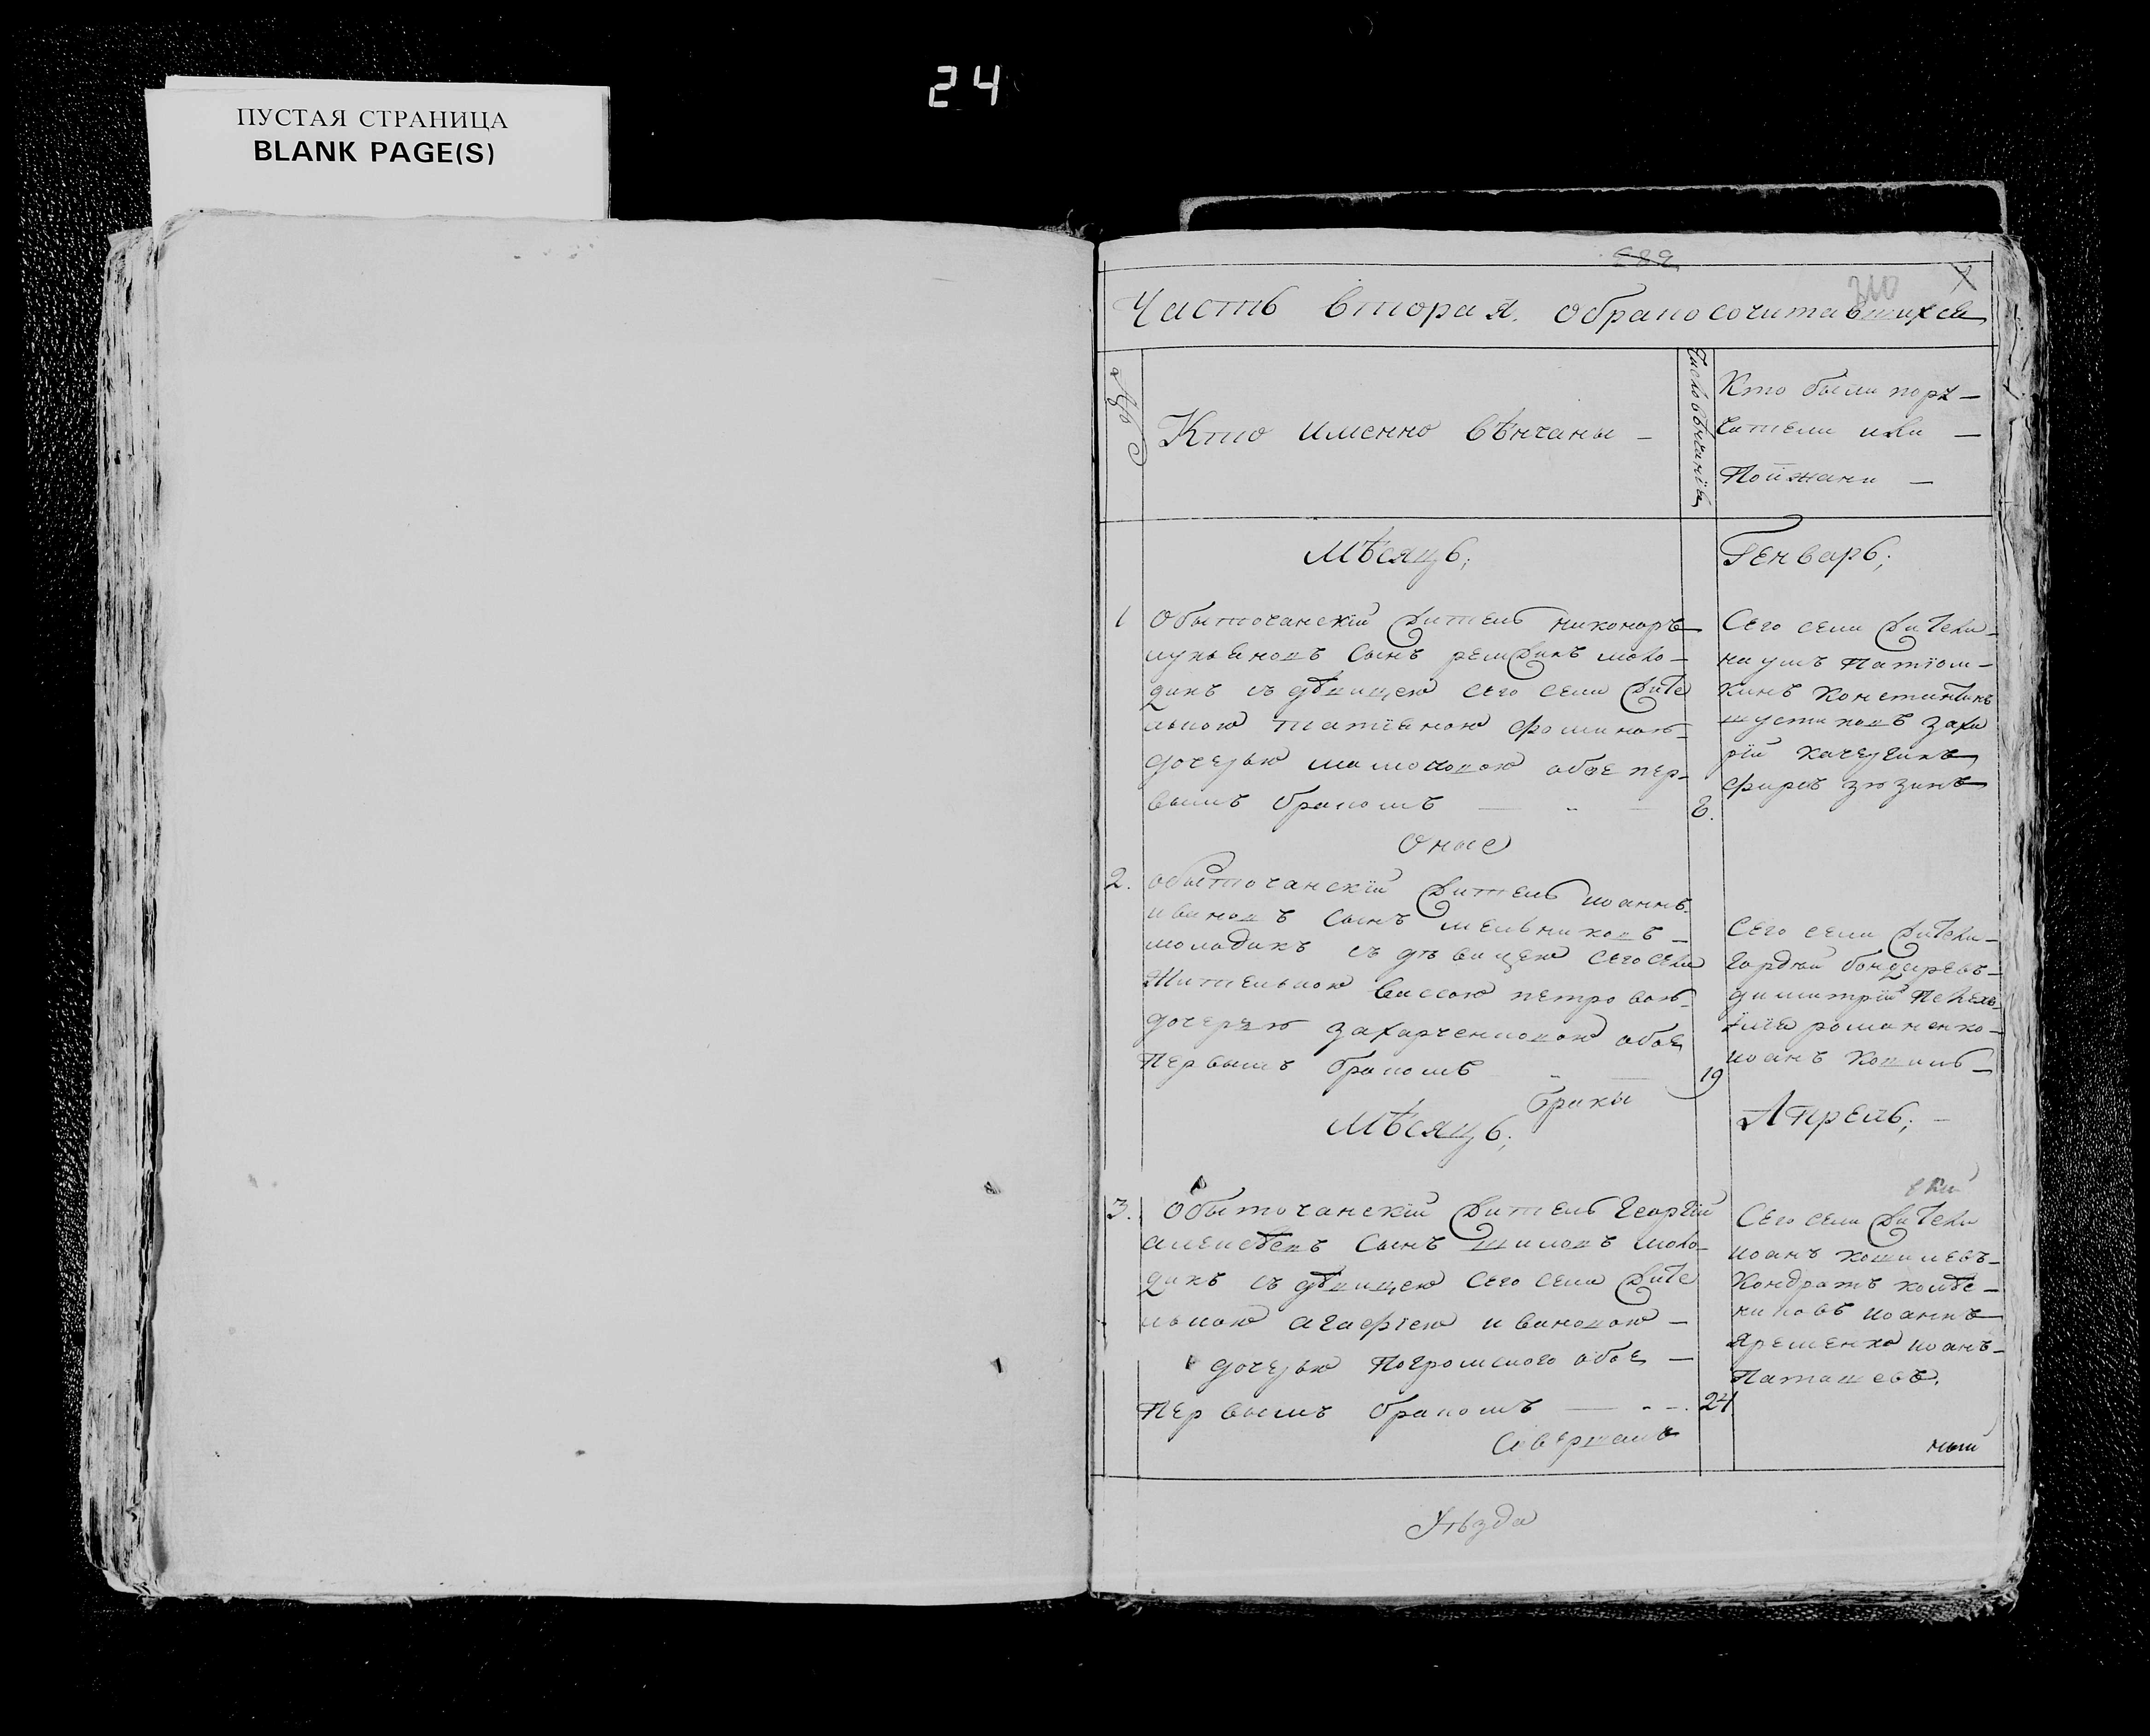 24
ПУСТАЯ СТРАНИЦА
BLANK PAGE(S)
310
Часть вторая. обракосочитавшихся
№
Кто именно вѣнчаны –
Число вѣнчанія
Кто были пору–
чители или –
Пойжани –
Мѣсяцъ;
Генварь;
1
Обыточанскій житель никоноръ
лукьяновъ сынъ молo–
дикъ съ дѣвицею сего села жите
лькою татіаною фоминою
дочерью обое пер–
вымъ бракомъ
8.
Сего села жители
наумъ
Константинъ
шустиковъ заха
рій
фирсъ зюзинъ
Оные
2.
обыточанскій житель иоаннъ
ивановъ сынъ мельниковъ –
молодикъ съ дѣвицею сего села
жителькою вассою петровою
дочерею захарченковою обое
Первымъ бракомъ
19
Сего села жители–
Гордѣй бондаревъ–
димитрій
илія романенко–
иоанъ
браки
Мѣсяцъ;
Апрель; –
3.
Обыточанскій житель Георгій
алексѣевъ сынъ шиловъ моло–
дикъ съ дѣвицею сего села жите
лькою агафіею ивановою –
дочерью Погромскаго обое –
Первымъ бракомъ
24
Сего села жители
иоанъ
Кондратъ
иоаннъ
яременко иоанъ–
Совершалъ
Уѣзда